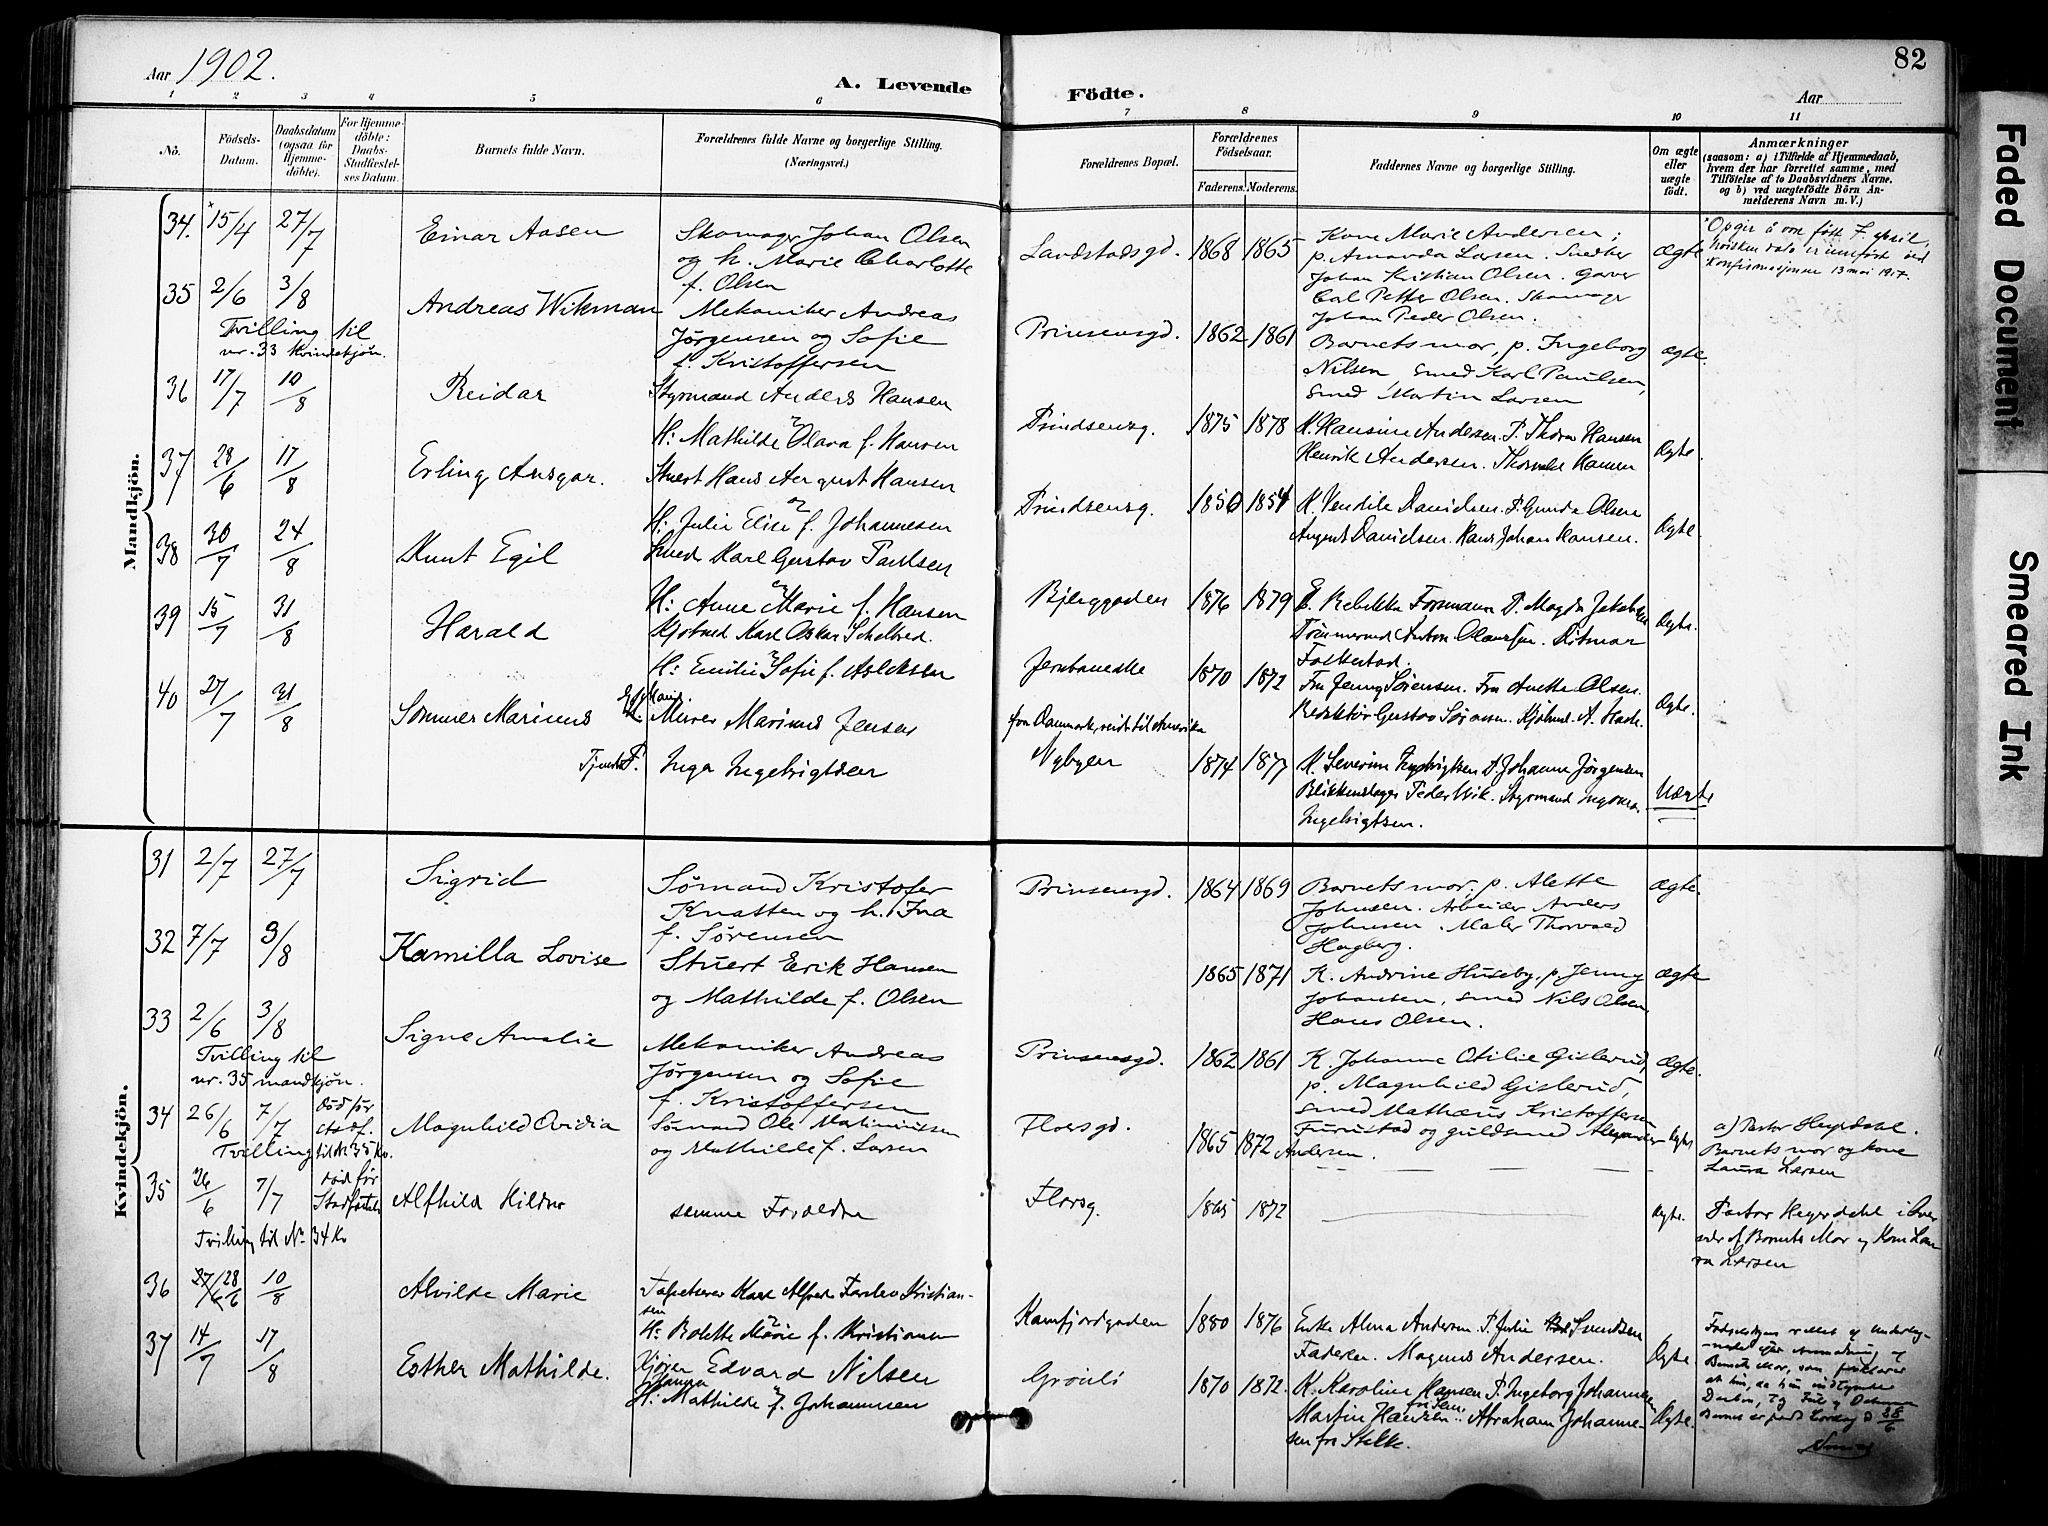 Aar 1902.
A. Levende
Födte.
82
Aar
1 2 3 4 5 6 7 8 9 10 11
No.
Födsels-
Datum.
Daabsdatum
(ogsaa for
Hjemme-
döbte).
For Hjemme-
döbte:
Daabs-
Stadfæstel-
ses Datum.
Barnets fulde Navn.
Forældrenes fulde Navne og borgerlige Stilling.
(Næringsvei.)
Forældrenes Bopæl.
Forældrenes
Födselsaar.
Faderens. Moderens.
Faddernes Navne og borgerlige Stilling.
Om ægte
eller
uægte
født.
Anmærkninger
(saasom: a) i Tilfælde af Hjemmedaab,
hvem der har forrettet samme, med
Tilföielse af to Daabsvidners Navne,
og b) ved uægtefödte Börn An-
melderens Navn m. V.)
Mandkjön.
34. 15/4 27/7 Einar Aasen
Skomager Johan Olsen
og h. Marie Charlotte
f. Olsen
Landstadsgd. 1868 1865
Kone Marie Andersen;
p. Amanda Larsen. Snedker
Johan Kristian Olsen. Garver
Carl Petter Olsen. Skomager
Johan Peder Olsen.
Ægte
Opgir å være født 7. april,
hvilken dato er innført ved
Konfirmasjonen 13 mai 1917.
35 2/6 3/8 Andreas Wikman
Tvilling til
nr. 33 Kvindekjøn.
Mekaniker Andreas
Jørgensen og Sofie
f. Kristoffersen
Prinsensgd. 1862 1861
Barnets mor, p. Ingeborg
Nilsen, smed Karl Paulsen,
smed Martin Larsen
Ægte.
36 17/7 10/8 Reidar
Styrmand Anders Hansen
H: Mathilde Olava f. Hansen
Prindsensg. 1875 1878
K. Hansine Andersen. P. Thora Hansen
Henrik Andersen. Thorvald Hansen
Ægte.
37 28/6 17/8 Erling Ansgar.
Stuert Hans August Hansen
H: Julie Elise f. Johannesen
Prindsensg. 1850 1854
K. Vendile Davidsen. P. Gunda Olsen
August Davidsen. Hans Johan Hansen.
Ægte.
38 30/7 24/8 Knut Egil
Smed Karl Gustav Paulsen
H: Anne Marie f. Hansen
Bjerggaden 1876 1879
E. Rebekka Formann P. Magda Jakobsen
Tømmermd Anton Olaussen. Ditmar
Falkestad.
Ægte.
39 15/7 31/8 Harald
Kjøbmd Karl Oskar Schelbred.
H: Emilie Sofie f. Aslaksen
Jernbaneske 1870 1872
Fru Jenny Sørensen. Fru Anette Olsen.
Redaktør Gustav Sørensen. Kjøbmd. A. Holt.
Ægte.
40 27/7 31/8 Sommer Marinus
Murer Marinus Jensen
fra Danmark, reist til Amerika
Inga Ingebrigtsen
Nybyen 1874 1877
K. Severine Ingebrigtsen P. Johanne Jørgensen
Blikkenslager Peder Wik. Styrmand Ingvar
Ingebrigtsen.
Uægte
Kvindekjön.
31 2/7 27/7 Sigrid
Sømand Kristofer
Knatten og h. Ina
f. Sørensen
Prinsensgd. 1864 1869
Barnets mor, p. Alette
Johnsen. Arbeider Anders
Johnsen. Maler Thorvald
Hagberg.
Ægte.
32 7/7 3/8 Kamilla Lovise
Stuert Erik Hansen
og Mathilde f. Olsen
1865 1871
K. Andrine Huseby, p. Jenny
Johansen, smed Nils Olsen,
Hans Olsen.
Ægte
33 2/6 3/8 Signe Amalie
Tvilling til
nr. 35 mandkjøn.
Mekaniker Andreas
Jørgensen og Sofie
f. Kristoffersen
Prinsensgd. 1862 1861
K. Johanne Otilie Gislerud,
p. Magnhild Gislerud,
smed Mathæus Kristoffersen
Furustad og guldsmed Alexander
Andersen.
Ægte.
34 26/6 7/7 Død før
Stadf.
Magnhild Ovidia
Tvilling til nr 35 kv.
Sømand Ole Matinussen
og Mathilde f. Larsen
Floresgd. 1865 1872
Ægte
a) Pastor Heyerdahl.
Barnets mor og kone
Laura Larsen
35 26/6 7/7 død før
Stadfæstelse
Alfhild Hildur
Tvilling til No 34 Kv
samme Forældre
Floresg. 1865 1872
Ægte.
Pastor Heyerdahl i Over
vær af Barnets Mor og Kone Lau
ra Larsen
36 27/6 28/6 10/8 Alvilde Marie
Tapetserer Karl Alfred Kristian-
sen
H: Bolette Marie f. Kristiansen
Kamfjordgaden 1880 1876
Enke Alma Andersen P. Julie Svendsen
Faderen. Magnus Andersen.
Ægte
37 14/7 17/8 Esther Mathilde.
Edvard Nilsen
H: Johanna Mathilde f. Johannesen
Grønli 1870 1872.
K. Karoline Hansen P. Ingeborg Johannesen
Martin Hansen. Abraham Johanne-
sen fra Stokke.
Ægte.
Faded Document
Smeared Ink